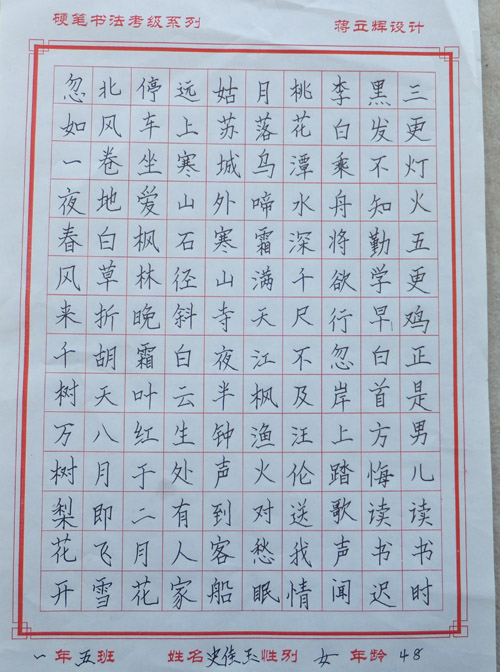 硬笔书法考级系列 蒋立辉设计
三更灯火五更鸡正是男儿读书时
黑发不知勤学早白首方悔读书迟
李白乘舟将欲行忽岸上踏歌声闻
桃花潭水深千尺不及汪伦送我情
月落乌啼霜满天江枫渔火对愁眠
姑苏城外寒山寺夜半钟声到客船
远上寒山石径斜白云生处有人家
停车坐爱枫林晚霜叶红于二月花
北风卷地白草折胡天八月即飞雪
忽如一夜春风来千树万树梨花开
一年五班 姓名 性别 女 年龄 48